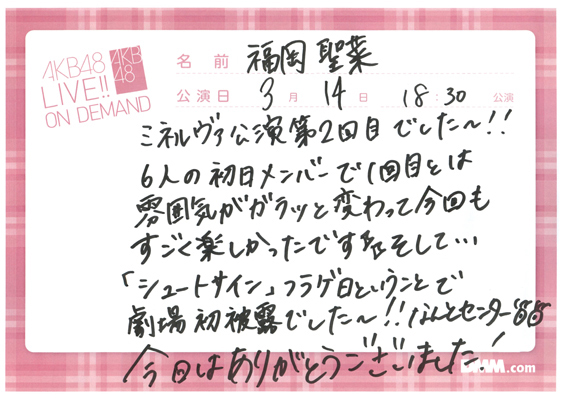 AKB48
LIVE!!
ON DEMAND
AKB
48
名前 福岡 聖菜
公演日 3月 14日 18:30 公演
ミネルヴァ公演第2回目でした〜!!
6人の初日メンバーで1回目とは
雰囲気がガラッと変わって今回も
すごく楽しかったです そして…
「シュートサイン」フラゲ日ということで
劇場初披露でした〜!! なんとセンター
今日はありがとうございました!
DMM.com